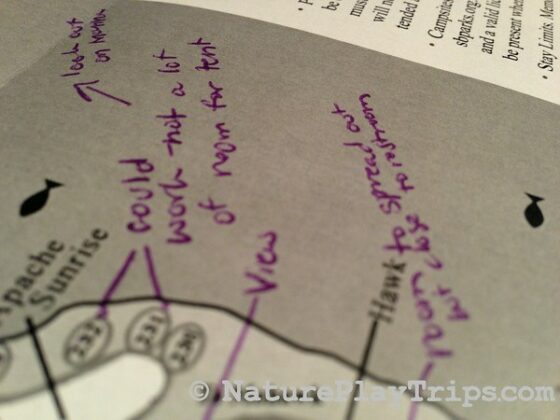 be
musi
will no
tended
• Campsites
sbparks.org
and a valid li
be present when
• Stay Limits.
look out
on
could
work - not a lot
of room for tent
View
room to spread out
but close to restroom
Apache
Sunrise
Hawk
232
231
230
© NaturePlayTrips.com